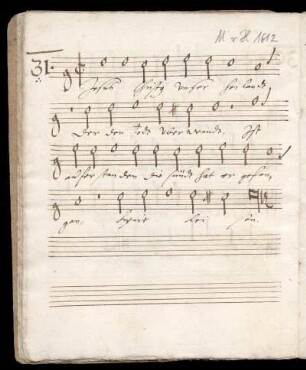 M v H 1612
31.
Jesus Christus unser Heilandt
Der den Todt uberwandt, Ist
auferstanden die sünde hat er gefan,
gen, Kyrie Elei son.